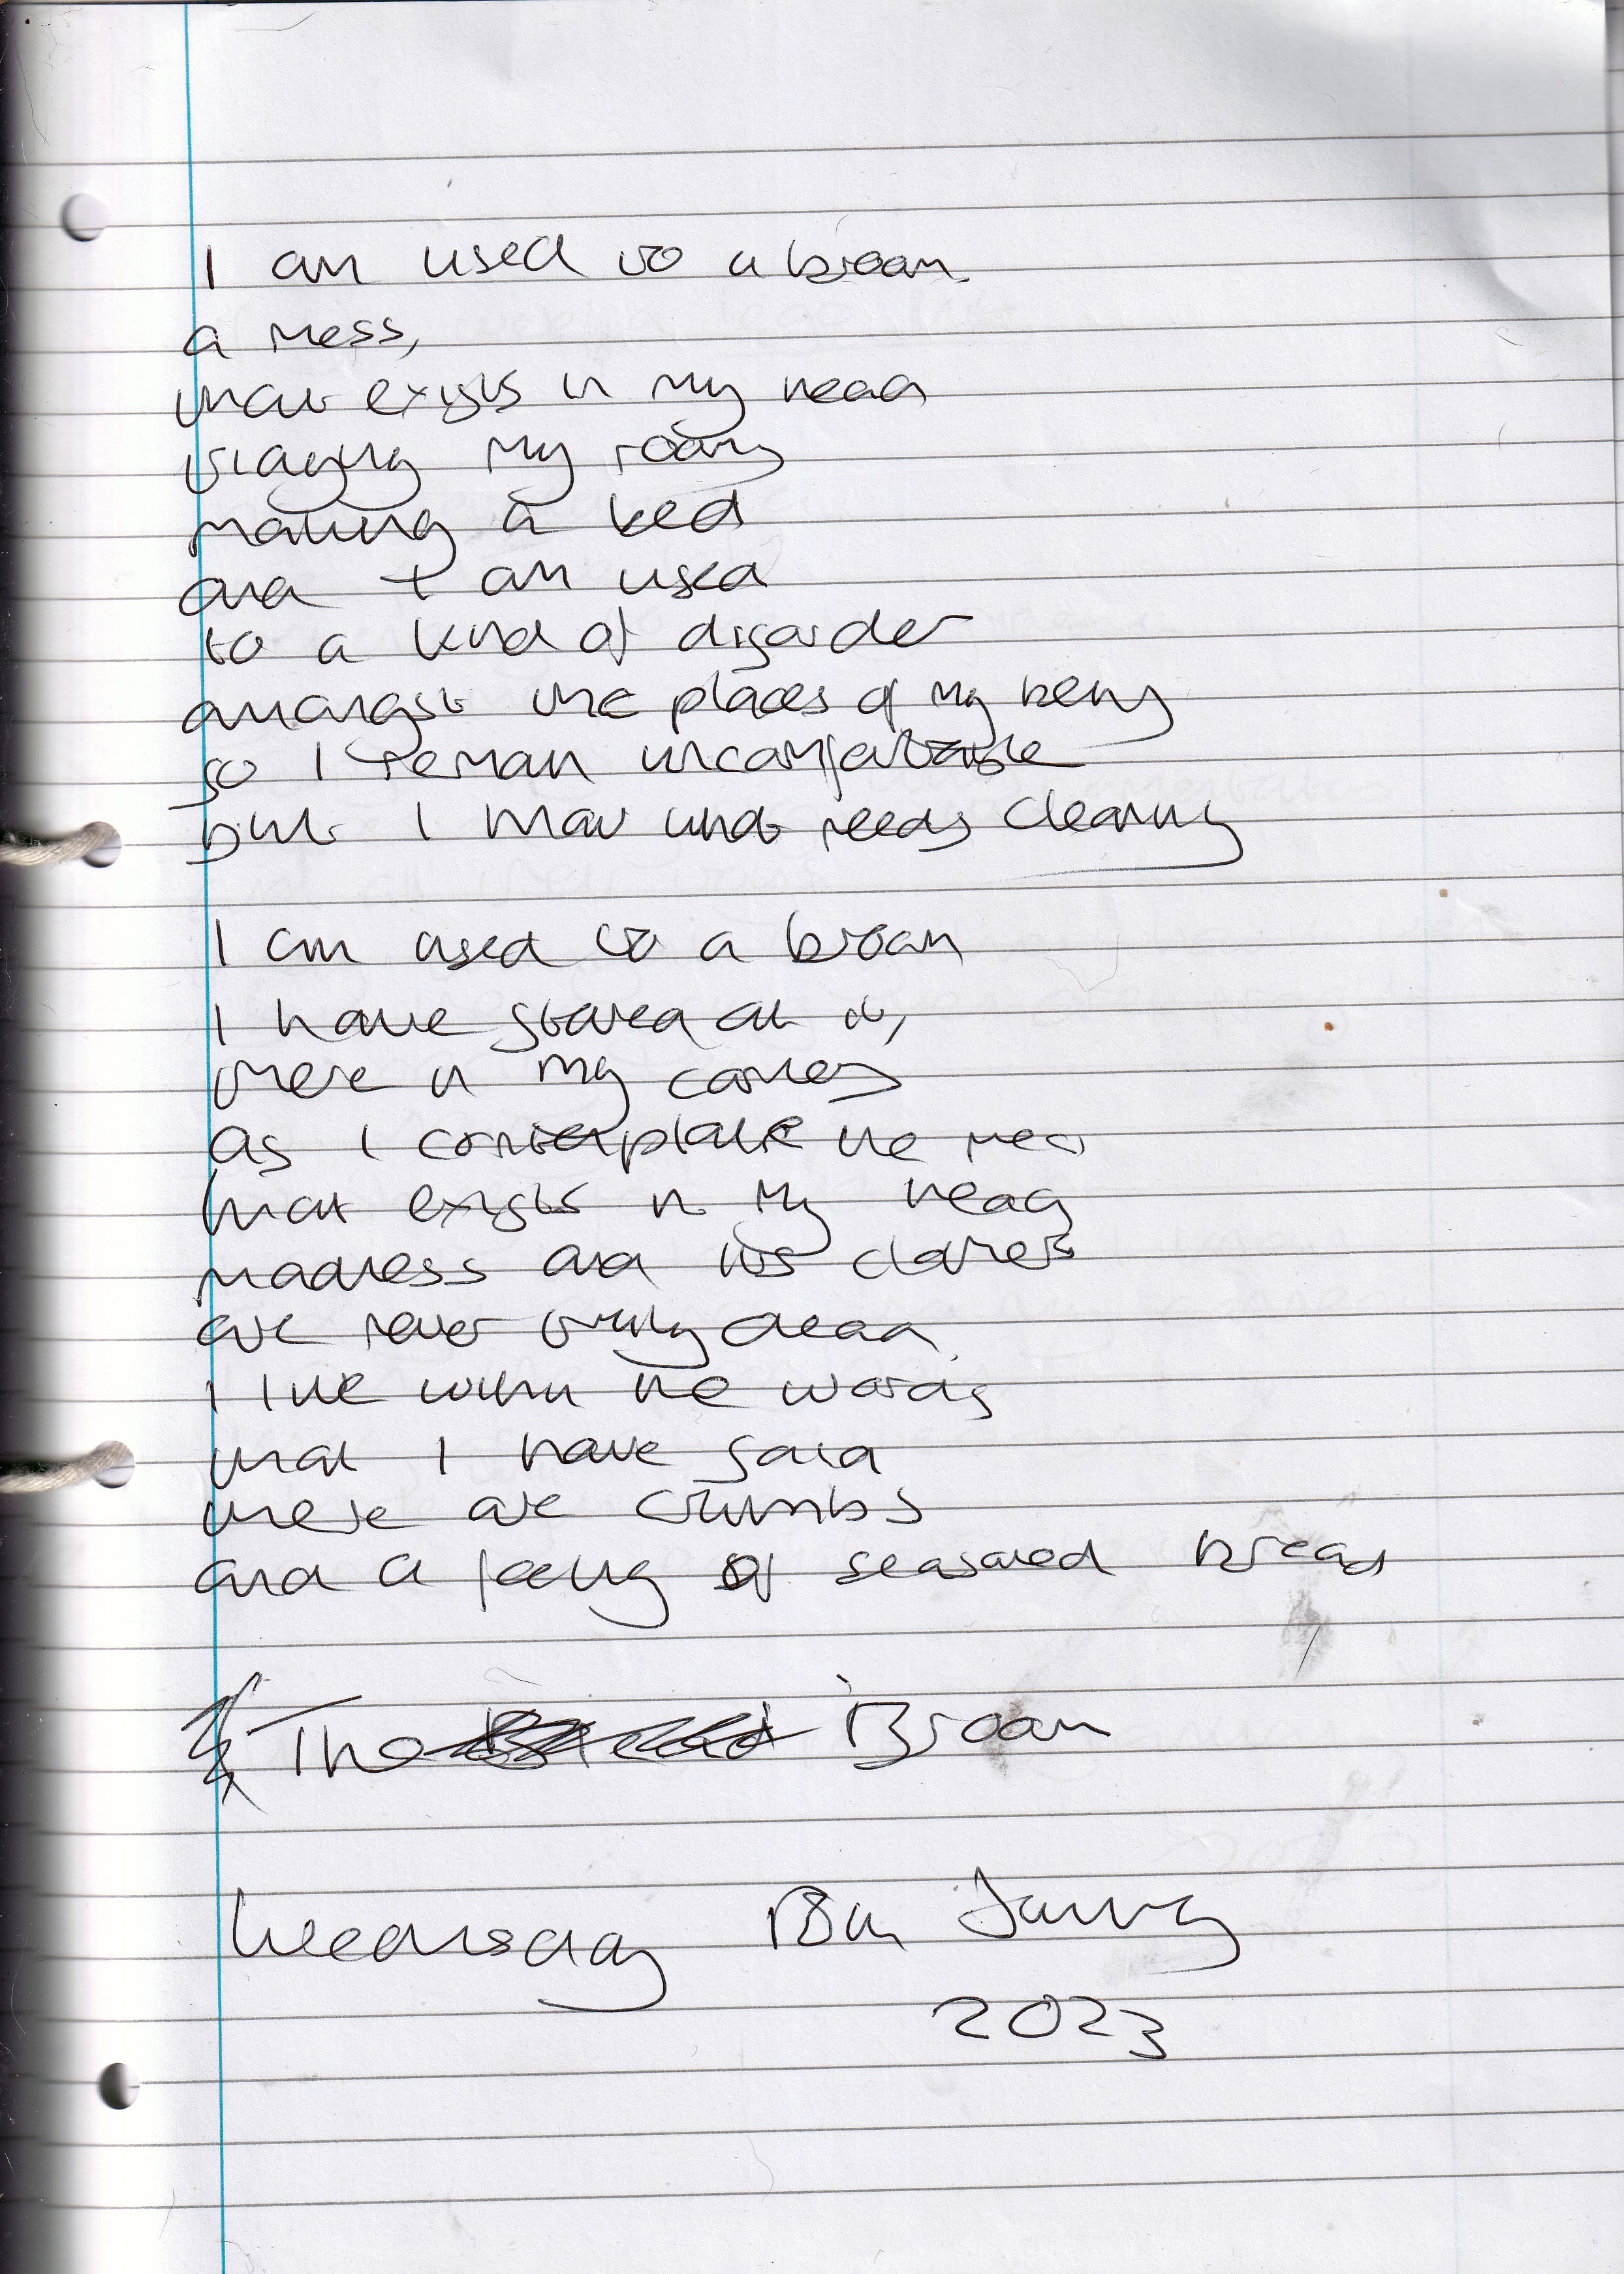 I am used to a broom
a mess,
that exists in my head
tidying my rooms
making a bed
and I am used
to a kind of disorder
amongst the places of my being
so I remain uncomfortable
but I know what needs cleaning
I am used to a broom
I have stared at it,
there in my corner
as I contemplate the mess
that exists in my head
madness and its clothes
are never truly dead
I live with the words
that I have said
there are crumbs
and a feeling of seasoned bread
The Broom
Wednesday
2023